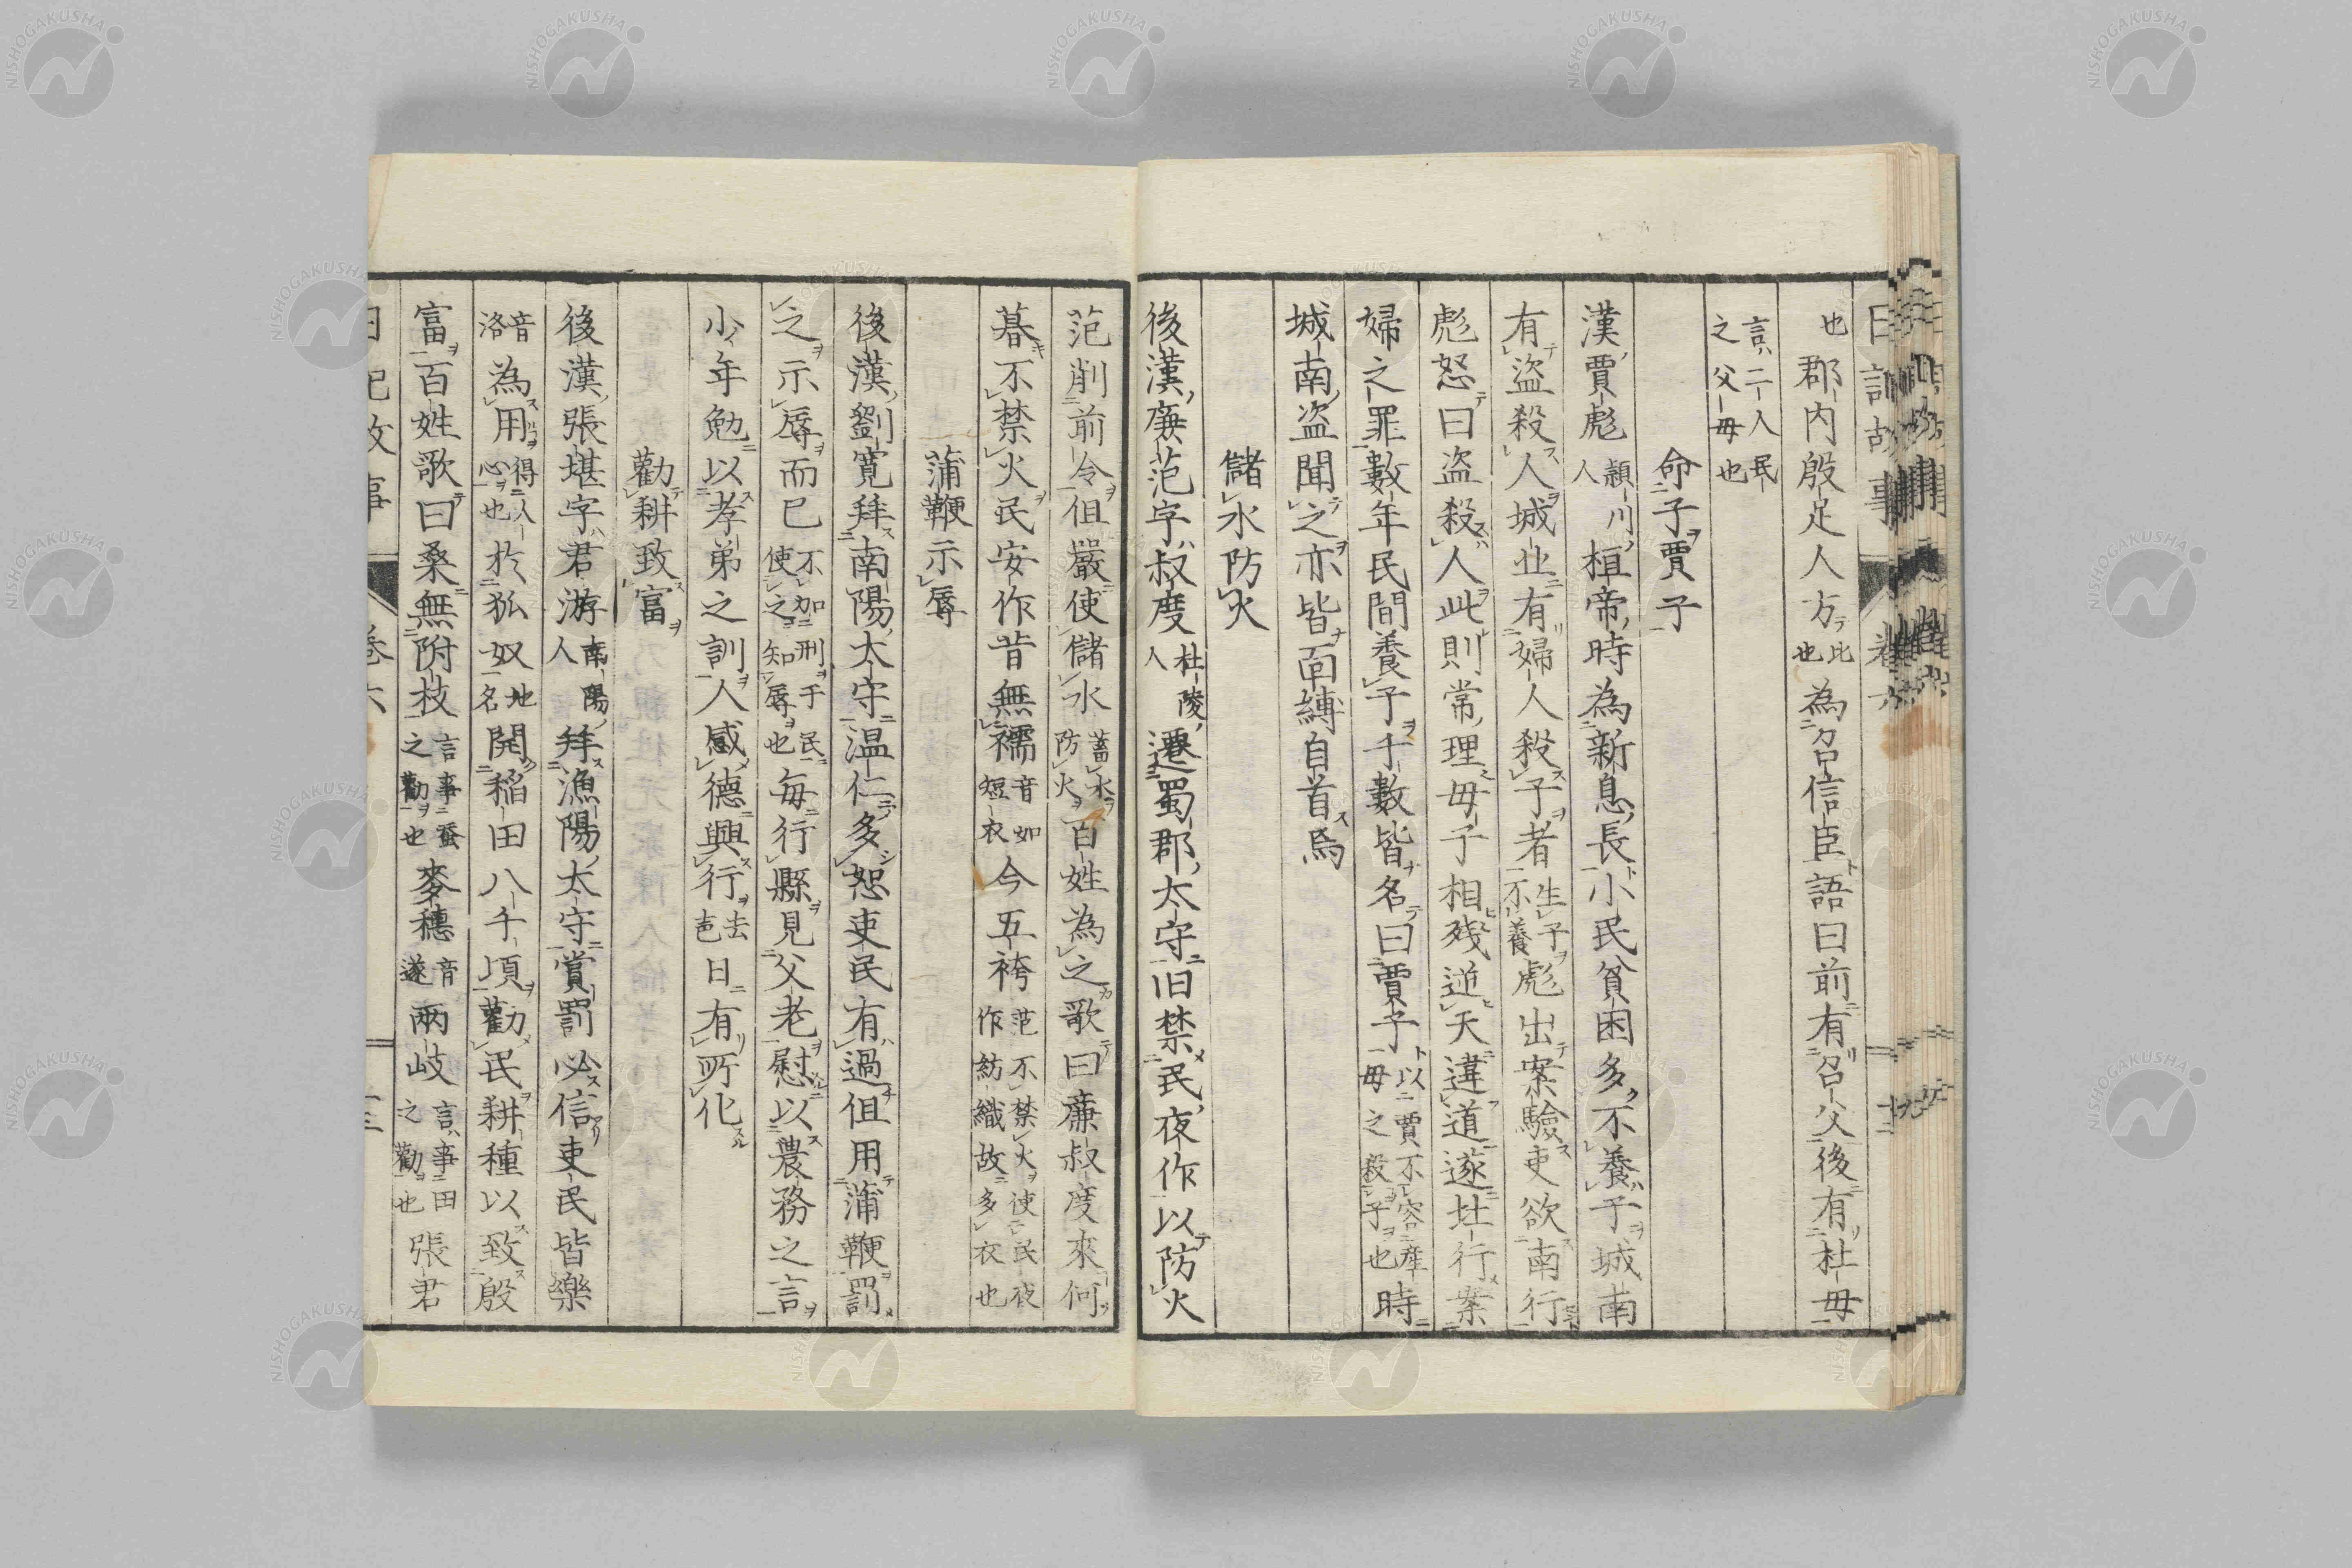 也郡内殷足人方比也為召信臣語曰前有召父後有杜母
言二人民之父母也
命子賈子
漢賈彪潁川人桓帝時為新息長小民貧困多不養子城南
有盗殺人城北有婦人殺子者生子不養彪出案驗吏欲南行
彪怒曰盗殺人此則常理母子相残逆天違道遂北行案
婦之罪數年民間養子千數皆名曰賈子以賈不容産母之殺子也時
城南盗聞之亦皆面縛自首焉
儲水防火
後漢廉范字叔度杜陵人遷蜀郡太守旧禁民夜作以防火
范削前令但嚴使儲水蓄水防火百姓為之歌曰廉叔度來何
暮不禁火民安作昔無襦音如短衣今五袴范不禁火使民夜作紡織故多衣也
蒲鞭示辱
後漢劉寛拜南陽太守温仁多恕吏民有過但用蒲鞭罰
之示辱而已不加刑于民使之知辱也每行縣見父老慰以農務之言
少年勉以孝弟之訓人感德興行去声日有所化
勸耕致富
後漢張堪字君游南陽人拜漁陽太守賞罰必信吏民皆樂
音洛為用得人心也於狐奴地名開稲田八千頃勸民耕種以致殷
富百姓歌曰桑無附枝言事蚕之勸也麥穗音遂兩岐言事田之勸也張君
日記故事
卷六